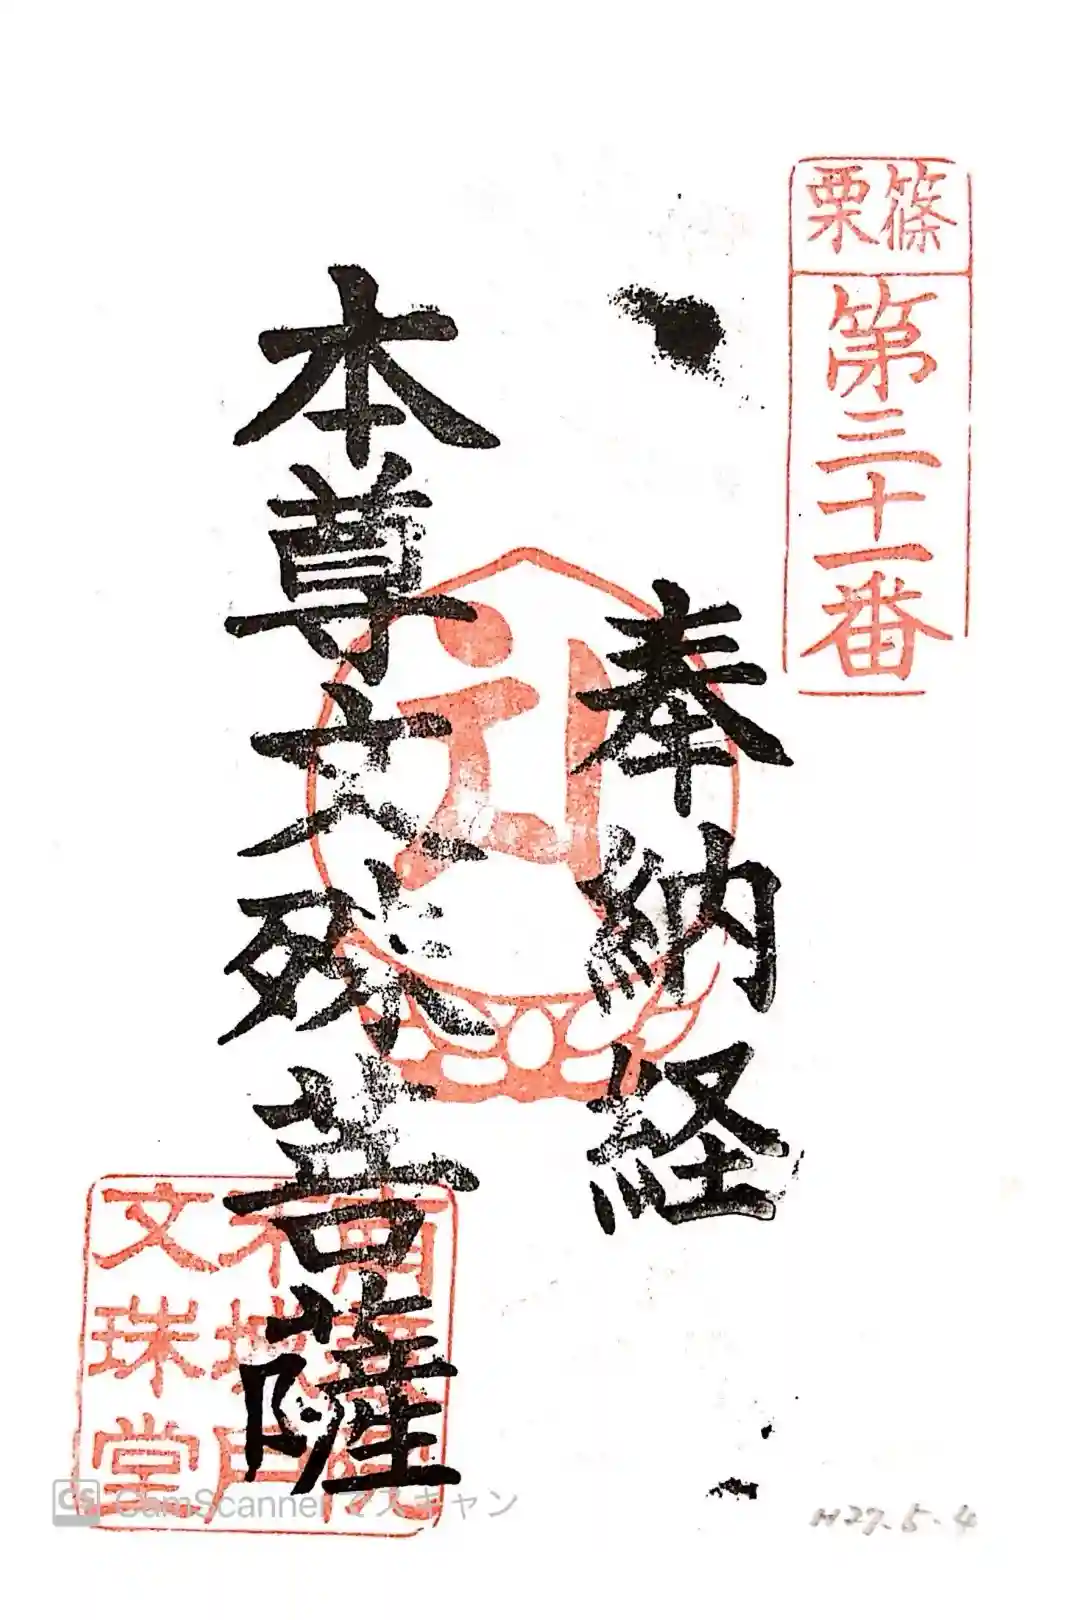 篠栗
第三十一番
奉納経
本尊文殊菩薩
城戸
文珠堂
H27.5.4
CS CamScanner でスキャン